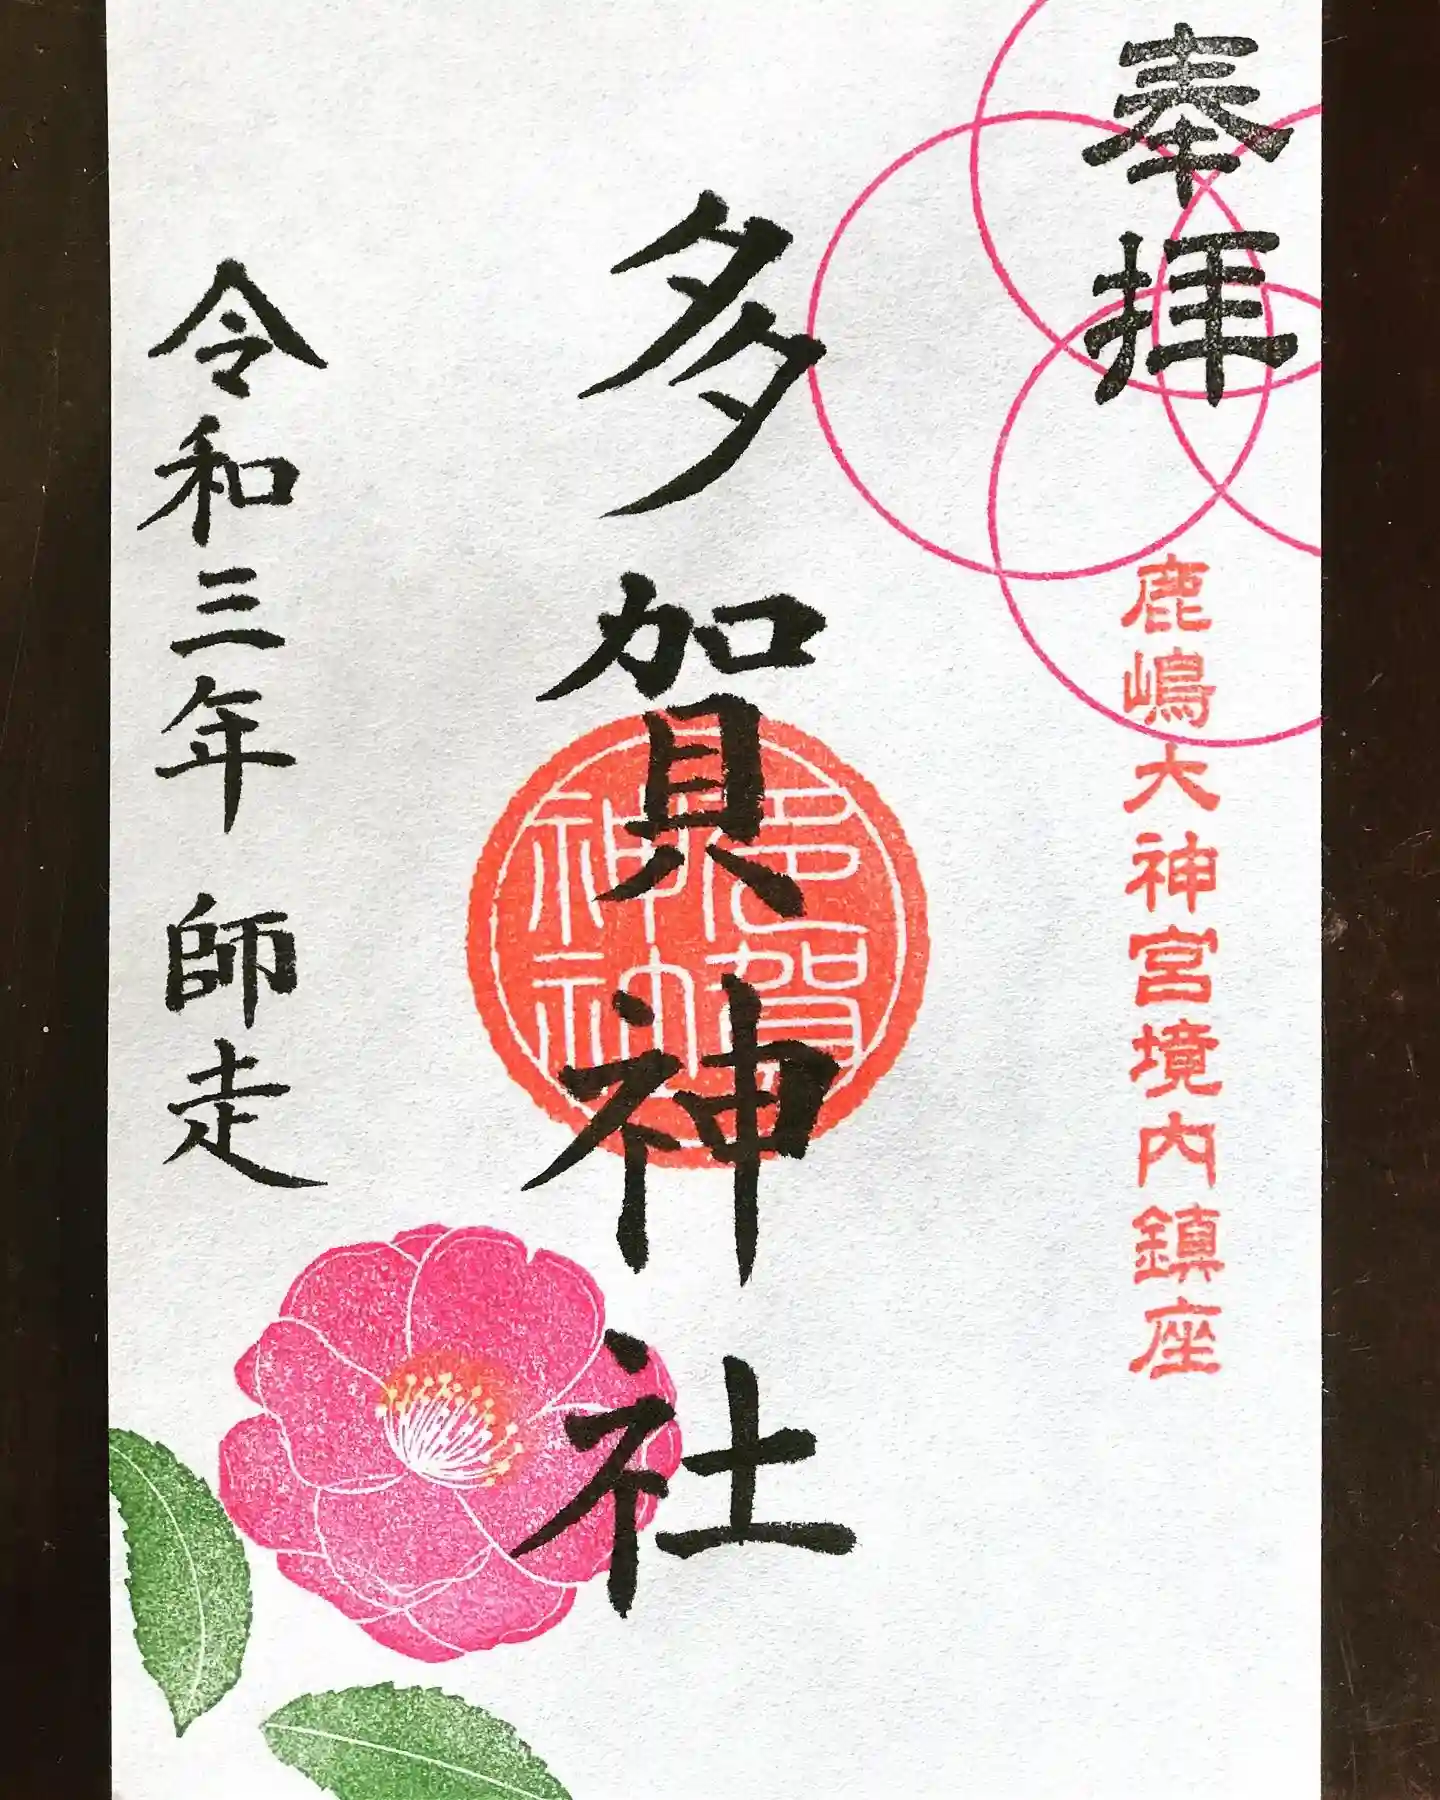 奉拝
鹿嶋大神宮境内鎮座
多賀神社
令和三年 師走